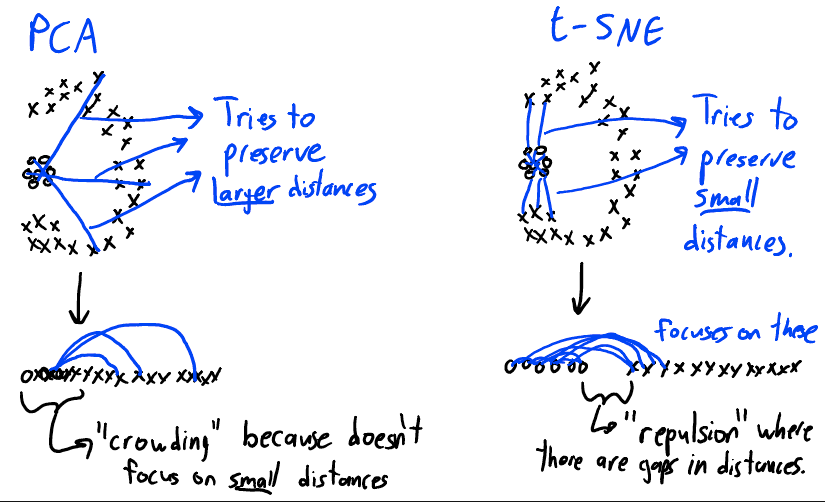 PCA
Tries to
preserve
larger distances
"crowding" because doesn't
focus on small distances
t-SNE
Tries to
preserve
small
distances.
focuses on these
"repulsion" where
there are gaps in distances.